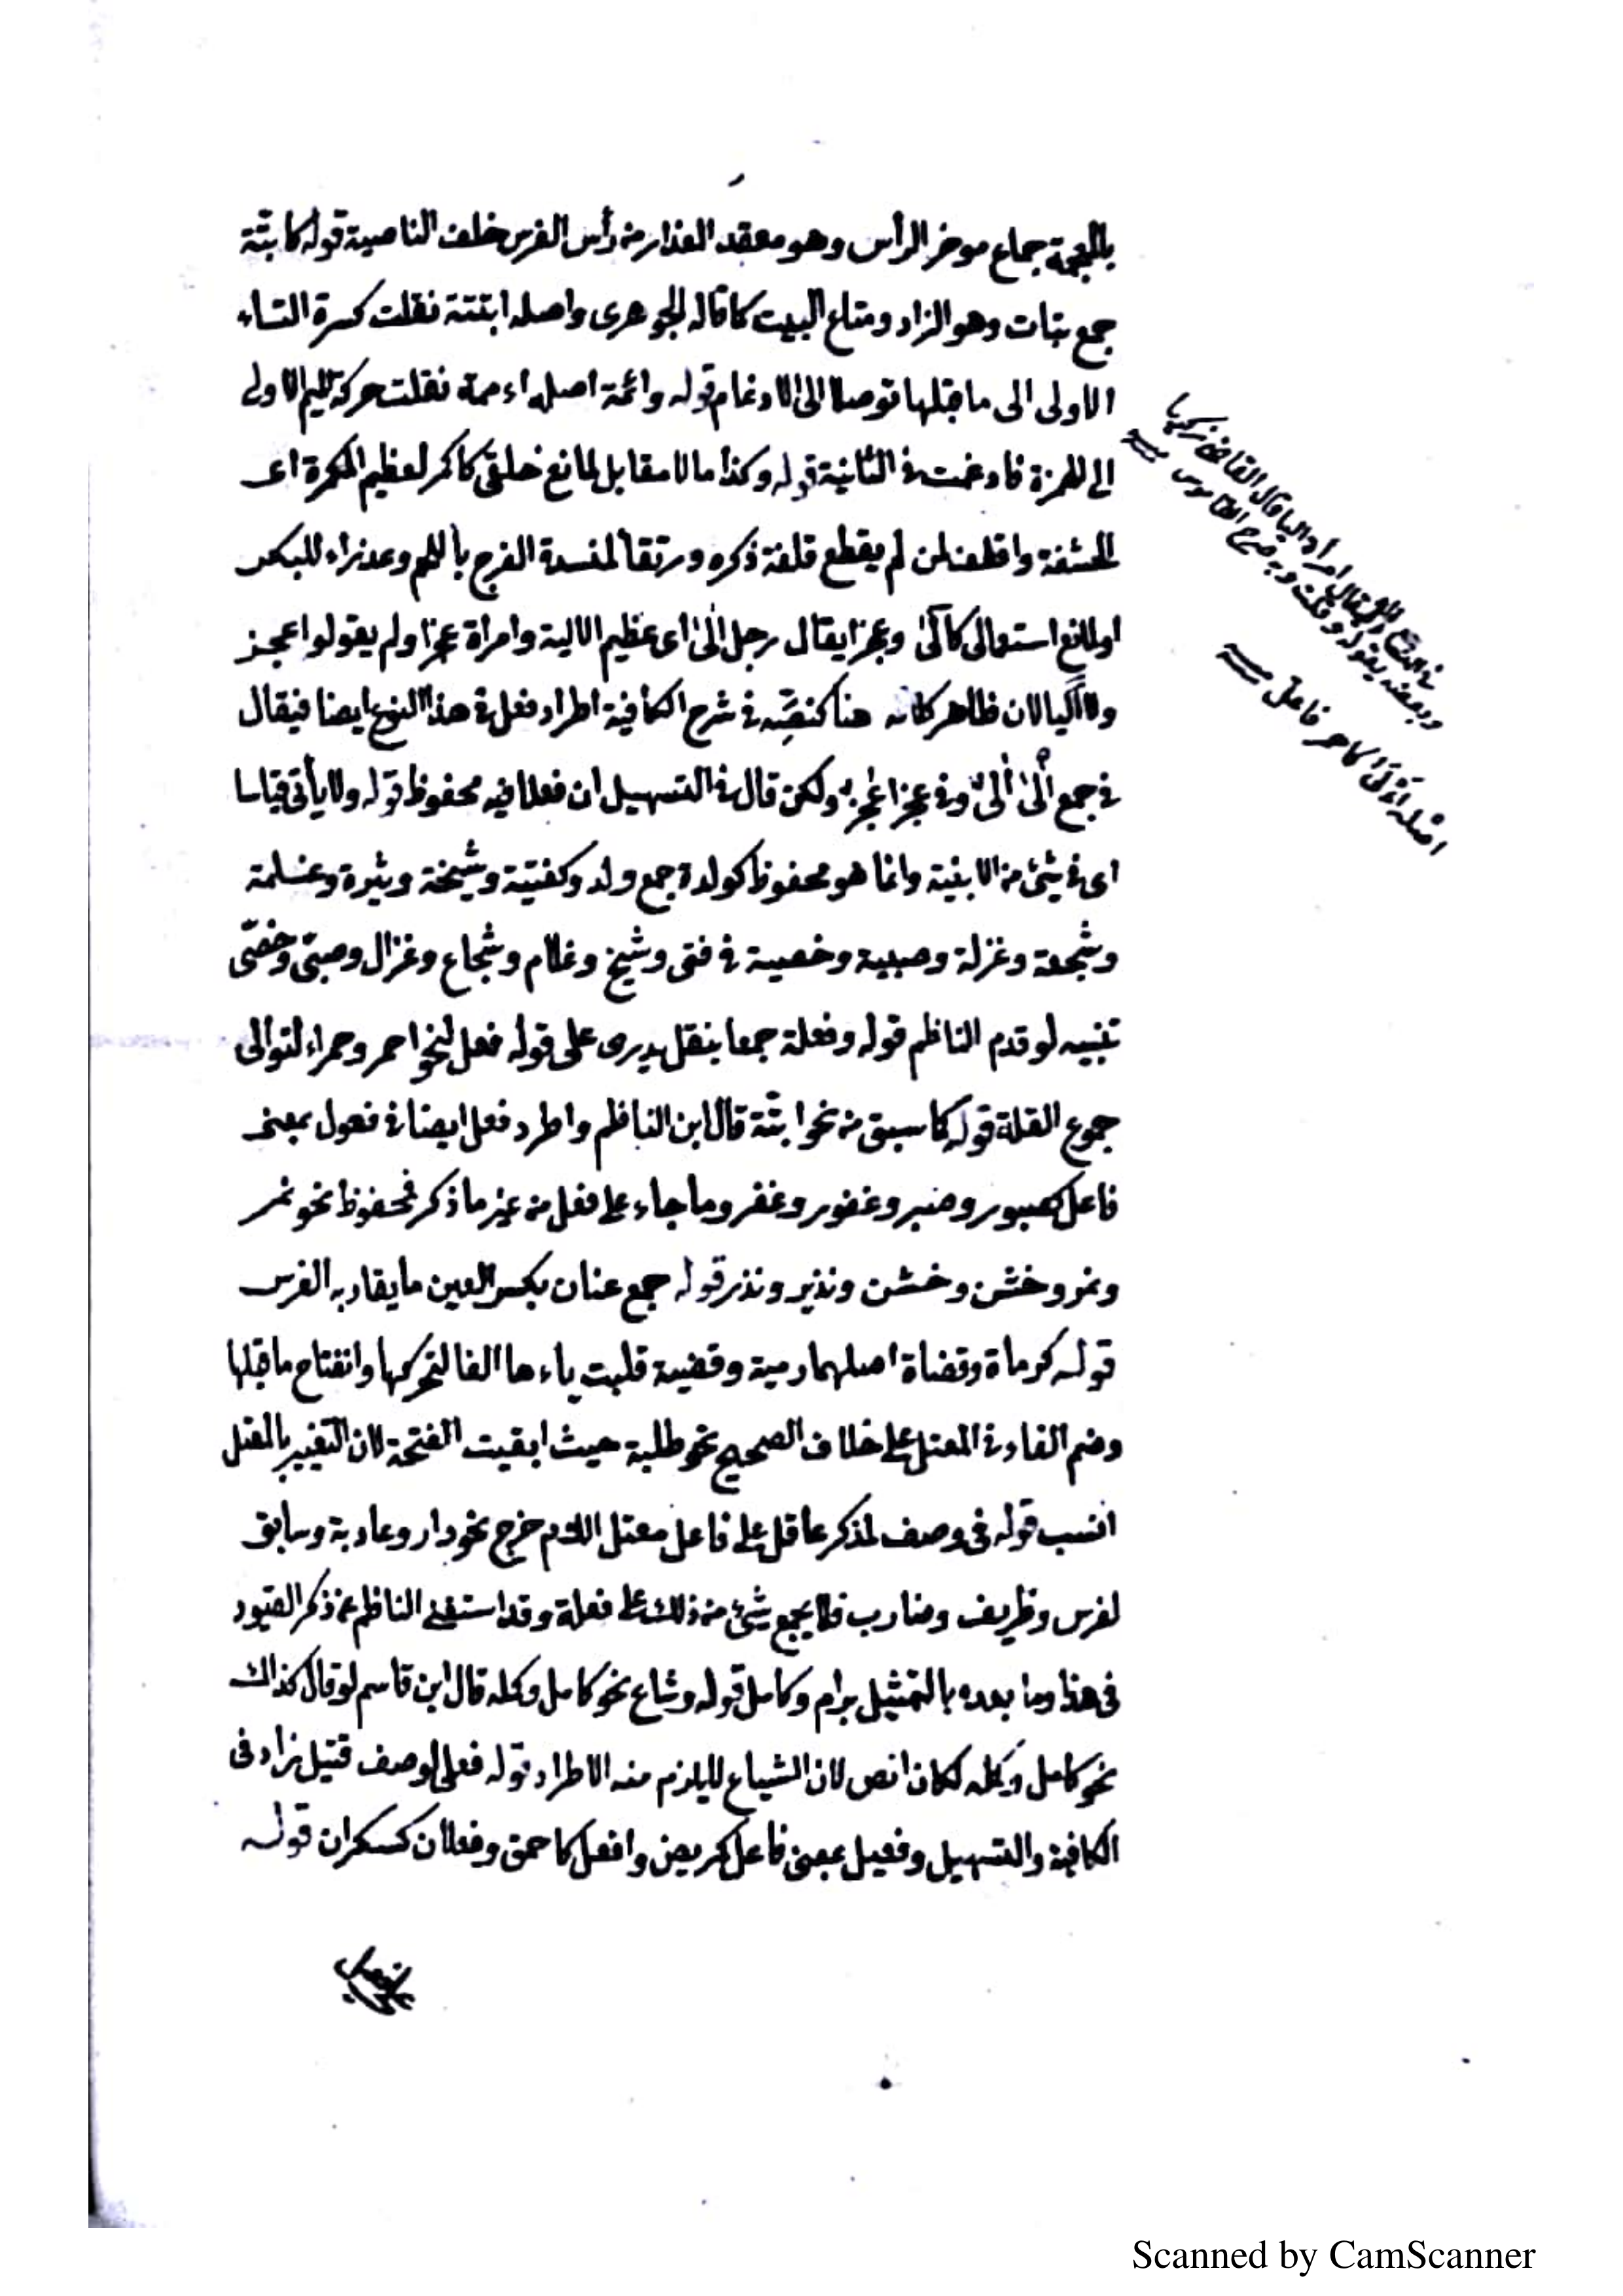 بالمعجمة جماع موخر الرأس وهو معقد العذار من رأس الفرس خلف الناصية قوله كابتّة
جمع بتات وهو الزاد ومتاع البيت كما قاله الجوهرى واصله ابتتة نقلت كسرة التاء
الاولى الى ما قبلها توصلا الى الادغام قوله وائمة اصله اءممة نقلت حركة الميم الاولى
الى الهمزة فادغمت فى الثانية قوله وكذا ما لا مقابل لمانع خلقى كاكمر لعظيم الكمرة اى
الحشفة واقلف لمن لم يقطع قلفة ذكره ورتقا لمنسدة الفرج باللحم وعذراء للبكر
او لمانع استعمالى كآلى وعجزا يقال رجل الى اى عظيم الالية وامراة عجزا ولم يقولوا اعجز
ولا اليا لان ظاهر كلامه هنا كنصّه فى شرح الكافية اطراد فعل فى هذا النوع ايضا فيقال
فى جمع ألى أُلى وفى عجزا عُجز ولكن قال فى التسهيل ان فعلا فيه محفوظ قوله ولا يأتى قياسا
اى فى شئ من الابنية وانما هو محفوظ كولدة جمع ولد وكفتية وشيخة وثيرة وغلمة
وشجعة وغزلة وصبية وخصية فى فتى وشيخ وغلام وشجاع وغزال وصبىّ وخصىّ
تنبيه لو قدم الناظم قوله وفعلة جمعا بنقل يدرى على قوله فعل لنحو احمر وحمراء لتوالى
جموع القلة قوله كما سبق من نحو ابتّة قال ابن الناظم واطرد فعل ايضا فى فعول بمعنى
فاعل كصبور وصبر وغفور وغفر وما جاء على فعل من غير ما ذكر فمحفوظ نحو نمر
ونمر وخشن وخشن ونذير ونذر قوله جمع عنان بكسر العين ما يقاد به الفرس
قوله كرماة وقضاة اصلهما رمية وقضية قلبت ياءهما الفا لتحركها وانفتاح ما قبلها
وضم الفاء فى المعتل على خلاف الصحيح نحو طلبة حيث ابقيت الفتحة لان التغيير بالمعتل
انسب قوله فى وصف لمذكر عاقل على فاعل معتل اللام خرج نحو دار وعادية وسابق
لفرس وظريف وضارب فلا يجمع شئ من ذلك على فعلة وقد استغنى الناظم عن ذكر القيود
فى هذا وما بعده بالتمثيل برام وكامل قوله وشاع نحو كامل وكمله قال ابن قاسم لو قال كذاك
نحو كامل وكمله لكان انص لان الشياع لا يلزم منه الاطراد قوله فعلى لوصف قتيل زاد فى
الكافية والتسهيل وفعيل بمعنى فاعل كمريض وافعل كاحمق وفعلان كسكران قوله
يقال امرأة اليا قاله القاضى زكريا
وبعضه يقوله وقلت وبه صرح القاموس
اصله أءلى كاحمر فاعل
Scanned by CamScanner